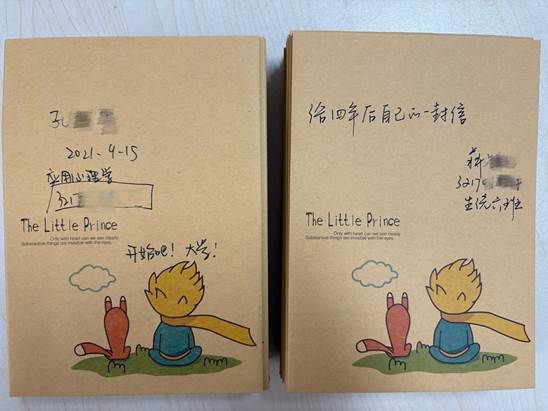 孔
2021-9-15
应用心理学
321
The Little Prince
Only with heart can we see clearly
Substantive things are invisible with the eyes.
开始吧！大学！
给四年后自己的一封信
3217
生统六班
The Little Prince
Only with heart can we see clearly
Substantive things are invisible with the eyes.